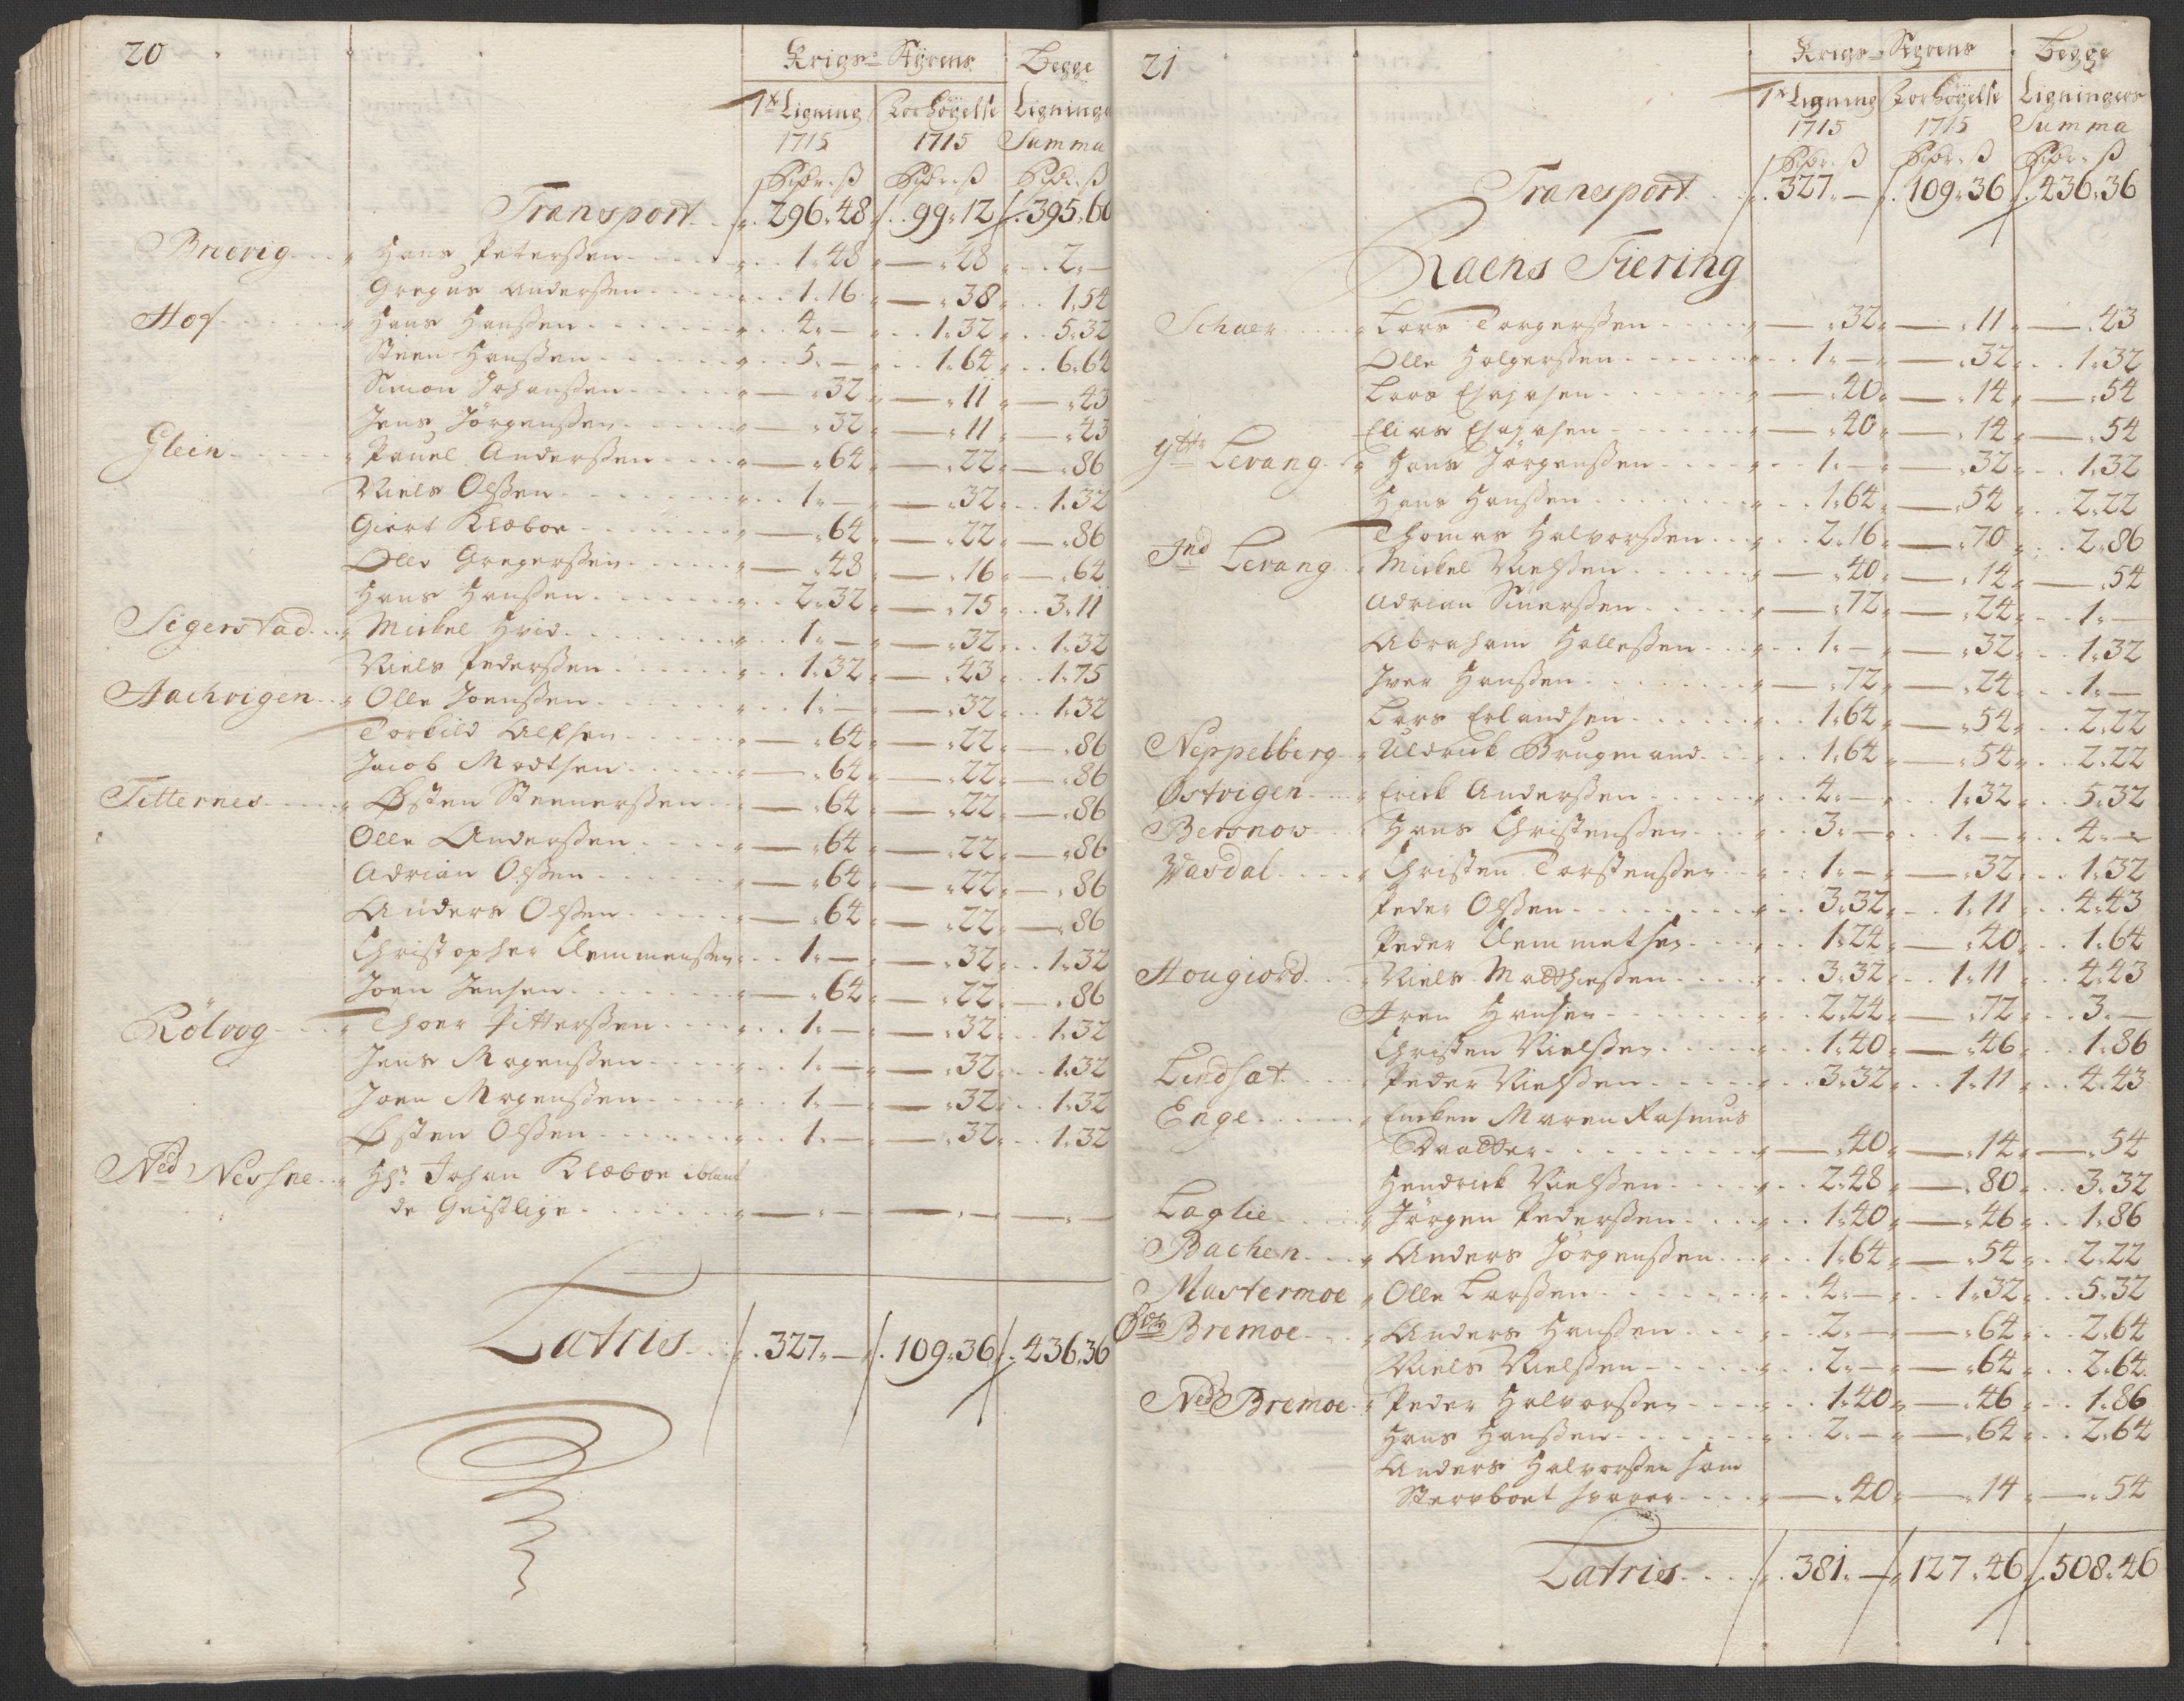 20
Krigs= Styrens Begge
1te Ligning Forhöyelse Ligninge
1715 1715 Summa
Rdr. ß Rdr. ß Rdr. ß
Transport 296.48 99.12 395.60
Breevig Hans Peterßen 1.48 — .48 2. —
Gregus Anderßen 1.16 — .38 1.54
Hof Hans Hanßen 4. — 1.32 5.32
Steen Hanßen 5. — 1.64 6.64
Simon Johanßen — .32 — .11 — .43
Jens Jörgenßen — .32 — .11 — .43
Glein Pauel Anderßen — .64 — .22 — .86
Niels Olßen 1. — — .32 1.32
Giert Klæboe — .64 — .22 — .86
Olle Gregerßen — .48 — .16 — .64
Hans Hanßen 2.32 — .75 3.11
Sigerstad Mickel Hvid 1. — — .32 1.32
Niels Pederßen 1.32 — .43 1.75
Aachvigen Olle Joenßen 1. — — .32 1.32
Torkild Alfsen — .64 — .22 — .86
Jacob Madtsen — .64 — .22 — .86
Titternes Østen Steenerßen — .64 — .22 — .86
Olle Anderßen — .64 — .22 — .86
Adrian Olßen — .64 — .22 — .86
Anders Olßen — .64 — .22 — .86
Christopher Clemmenßen 1. — — .32 1.32
Joen Jensen — .64 — .22 — .86
Rölvog Thoer Pitterßen 1. — — .32 1.32
Jens Mogenßen 1. — — .32 1.32
Joen Mogenßen 1. — — .32 1.32
Østen Olßen 1. — — .32 1.32
Ned Nessne Hr: Johan Klæboe iblant
de Geistlige — . — — . — — . —
Latris 327. — 109.36 436.36
21
Krigs= Styrens Begge
1te Ligning Forhöyelse Ligningers
1715 1715 Summa
Rdr. ß Rdr. ß Rdr. ß
Transport 327. — 109.36 436.36
Raens Fiering
Schaer Lars Torgerßen — .32 — .11 — .43
Olle Holgerßen 1. — — .32 1.32
Lars Esajasen — .40 — .14 — .54
Elias Esajasen — .40 — .14 — .54
Ytte Levang Hans Jörgenßen 1. — — .32 1.32
Hans Hanßen 1.64 — .54 2.22
Thomas Halvorßen 2.16 — .70 2.86
Ind Levang Mickel Nielßen — .40 — .14 — .54
Adrian Siverßen — .72 — .24 1. —
Abraham Halleßen 1. — — .32 1.32
Iver Hanßen — .72 — .24 1. —
Lars Erlandsen 1.64 — .54 2.22
Neppelberg Uldrick Brugmand 1.64 — .54 2.22
Østvigen Erick Anderßen 4. — 1.32 5.32
Bersnow Hans Christenßen 3. — 1. — 4. —
Yasdal Christen Torstenßen 1. — — .32 1.32
Peder Olßen 3.32 1.11 4.43
Peder Clemmetsen 1.24 — .40 1.64
Hougiord Niels Matthießen 3.32 1.11 4.43
Aren Hansen 2.24 — .72 3. —
Christen Nielßen 1.40 — .46 1.86
Lindsat Peder Nielßen 3.32 1.11 4.43
Enge Encken Maren Rasmus
Daatter — .40 — .14 — .54
Hendrick Nielßen 2.48 — .80 3.32
Laglie Jörgen Pederßen 1.40 — .46 1.86
Bachen Anders Jörgenßen 1.64 — .54 2.22
Mastermoe Olle Larßen 4. — 1.32 5.32
Bremoe Anders Hanßen 2. — — .64 2.64
Niels Nielßen 2. — — .64 2.64
Ned Bremoe Peder Halvorßen 1.40 — .46 1.86
Hans Hanßen 2. — — .64 2.64
Anders Halvorßen som
Stervboet svarer — .40 — .14 — .54
Latris 381. — 127.46 508.46